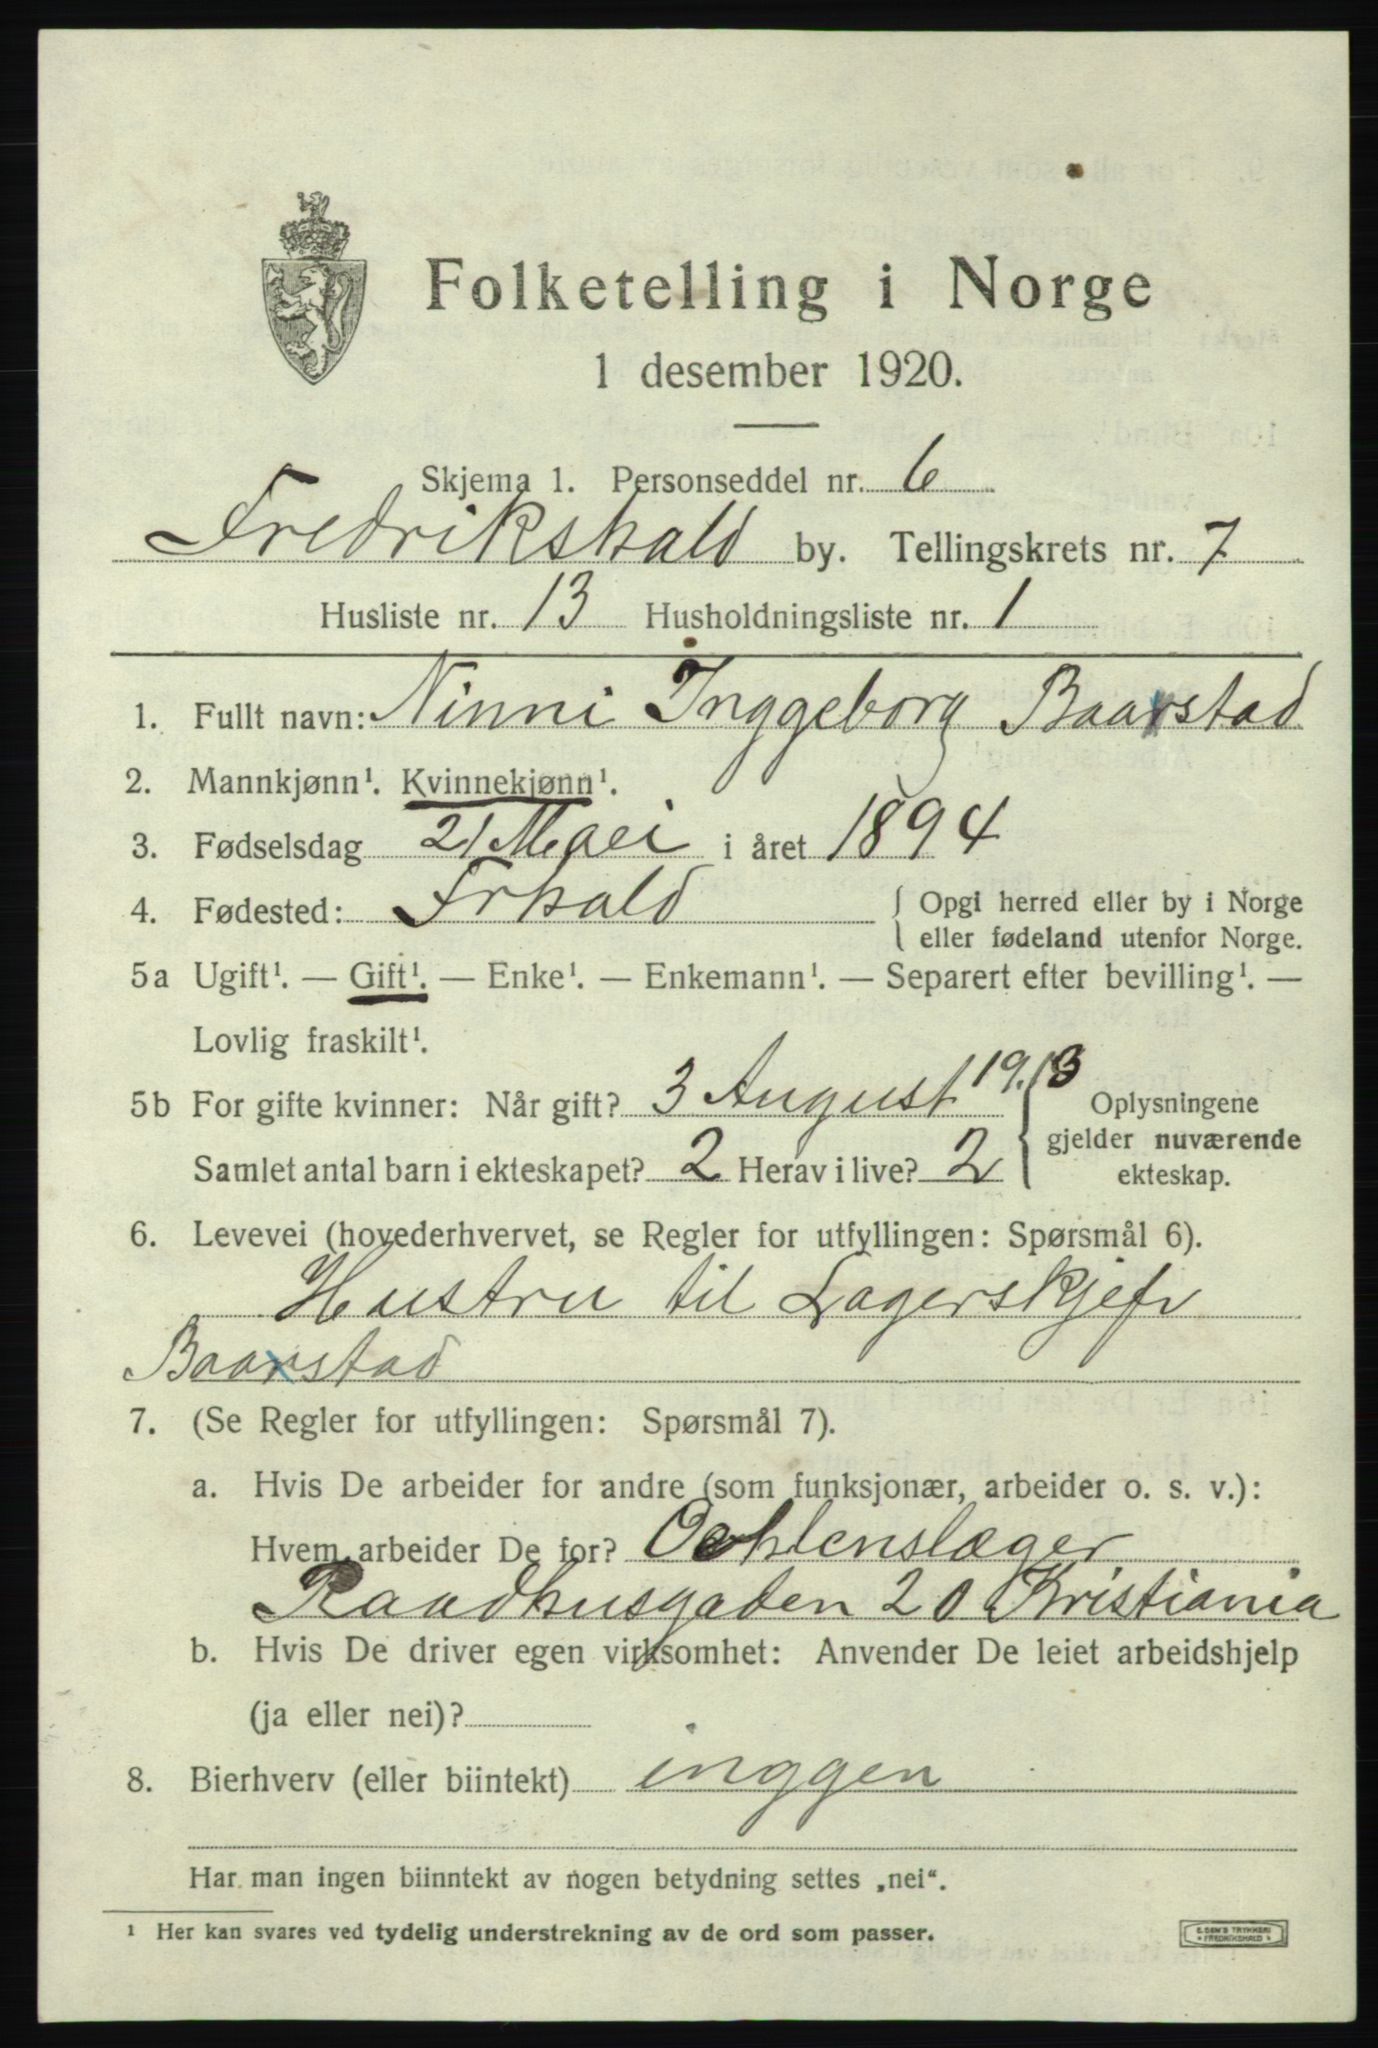 Folketelling i Norge
1 desember 1920.
Skjema 1. Personseddel nr. 6
Fredrikshald by. Tellingskrets nr. 7
Husliste nr. 13 Husholdningsliste nr. 1
1. Fullt navn: Ninni Inggeborg Baarstad
2. Mannkjønn¹. Kvinnekjønn¹.
3. Fødselsdag 21 Maei i året 1894
4. Fødested: Frhald { Opgi herred eller by i Norge
eller fødeland utenfor Norge.
5a Ugift¹. — Gift¹. — Enke¹. — Enkemann¹. — Separert efter bevilling¹. —
Lovlig fraskilt¹.
5b For gifte kvinner: Når gift? 3 August 1913 { Oplysningene
gjelder nuværende
Samlet antal barn i ekteskapet? 2 Herav i live? 2
ekteskap.
6. Levevei (hovederhvervet, se Regler for utfyllingen: Spørsmål 6).
Hustru til Lagerskjefv
Baarstad
7. (Se Regler for utfyllingen: Spørsmål 7).
a. Hvis De arbeider for andre (som funksjonær, arbeider o. s. v.):
Hvem arbeider De for? Oehlenslæger
Raadhusgaden 20 Kristiania
b. Hvis De driver egen virksomhet: Anvender De leiet arbeidshjelp
(ja eller nei)?
8. Bierhverv (eller biintekt) inggen
Har man ingen biinntekt av nogen betydning settes „nei“.
¹ Her kan svares ved tydelig understrekning av de ord som passer.
E. SEM'S TRYKKERI
FREDRIKSHALD